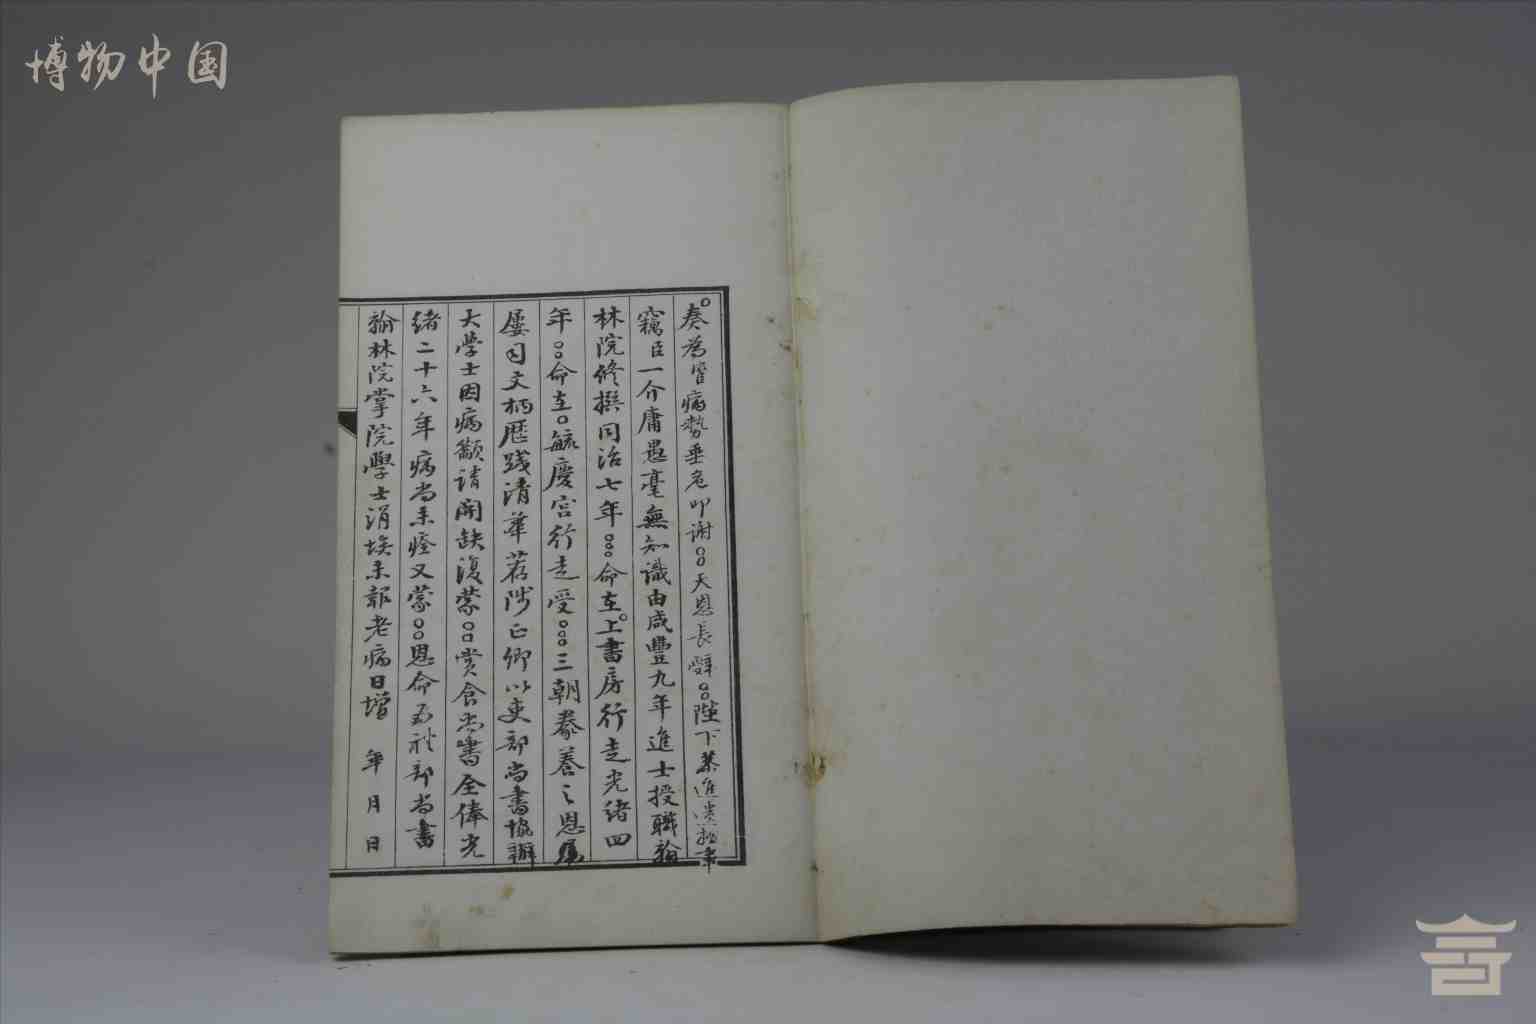 博物中国
奏為臣病勢垂危叩謝○○天恩長辭○○陛下恭進遺摺事
竊臣一介庸愚毫無知識由咸豐九年進士授職翰
林院修撰同治七年○○○命在○上書房行走光緒四
年○○命在○毓慶宮行走受○○○三朝豢養之恩
屢司文柄歷踐清華荐陟正卿以吏部尚書協辦
大學士因病籲請開缺復蒙○○賞食尚書全俸光
緒二十六年病尚未痊又蒙○○恩命為禮部尚書
翰林院掌院學士涓埃未報老病日增 年 月 日